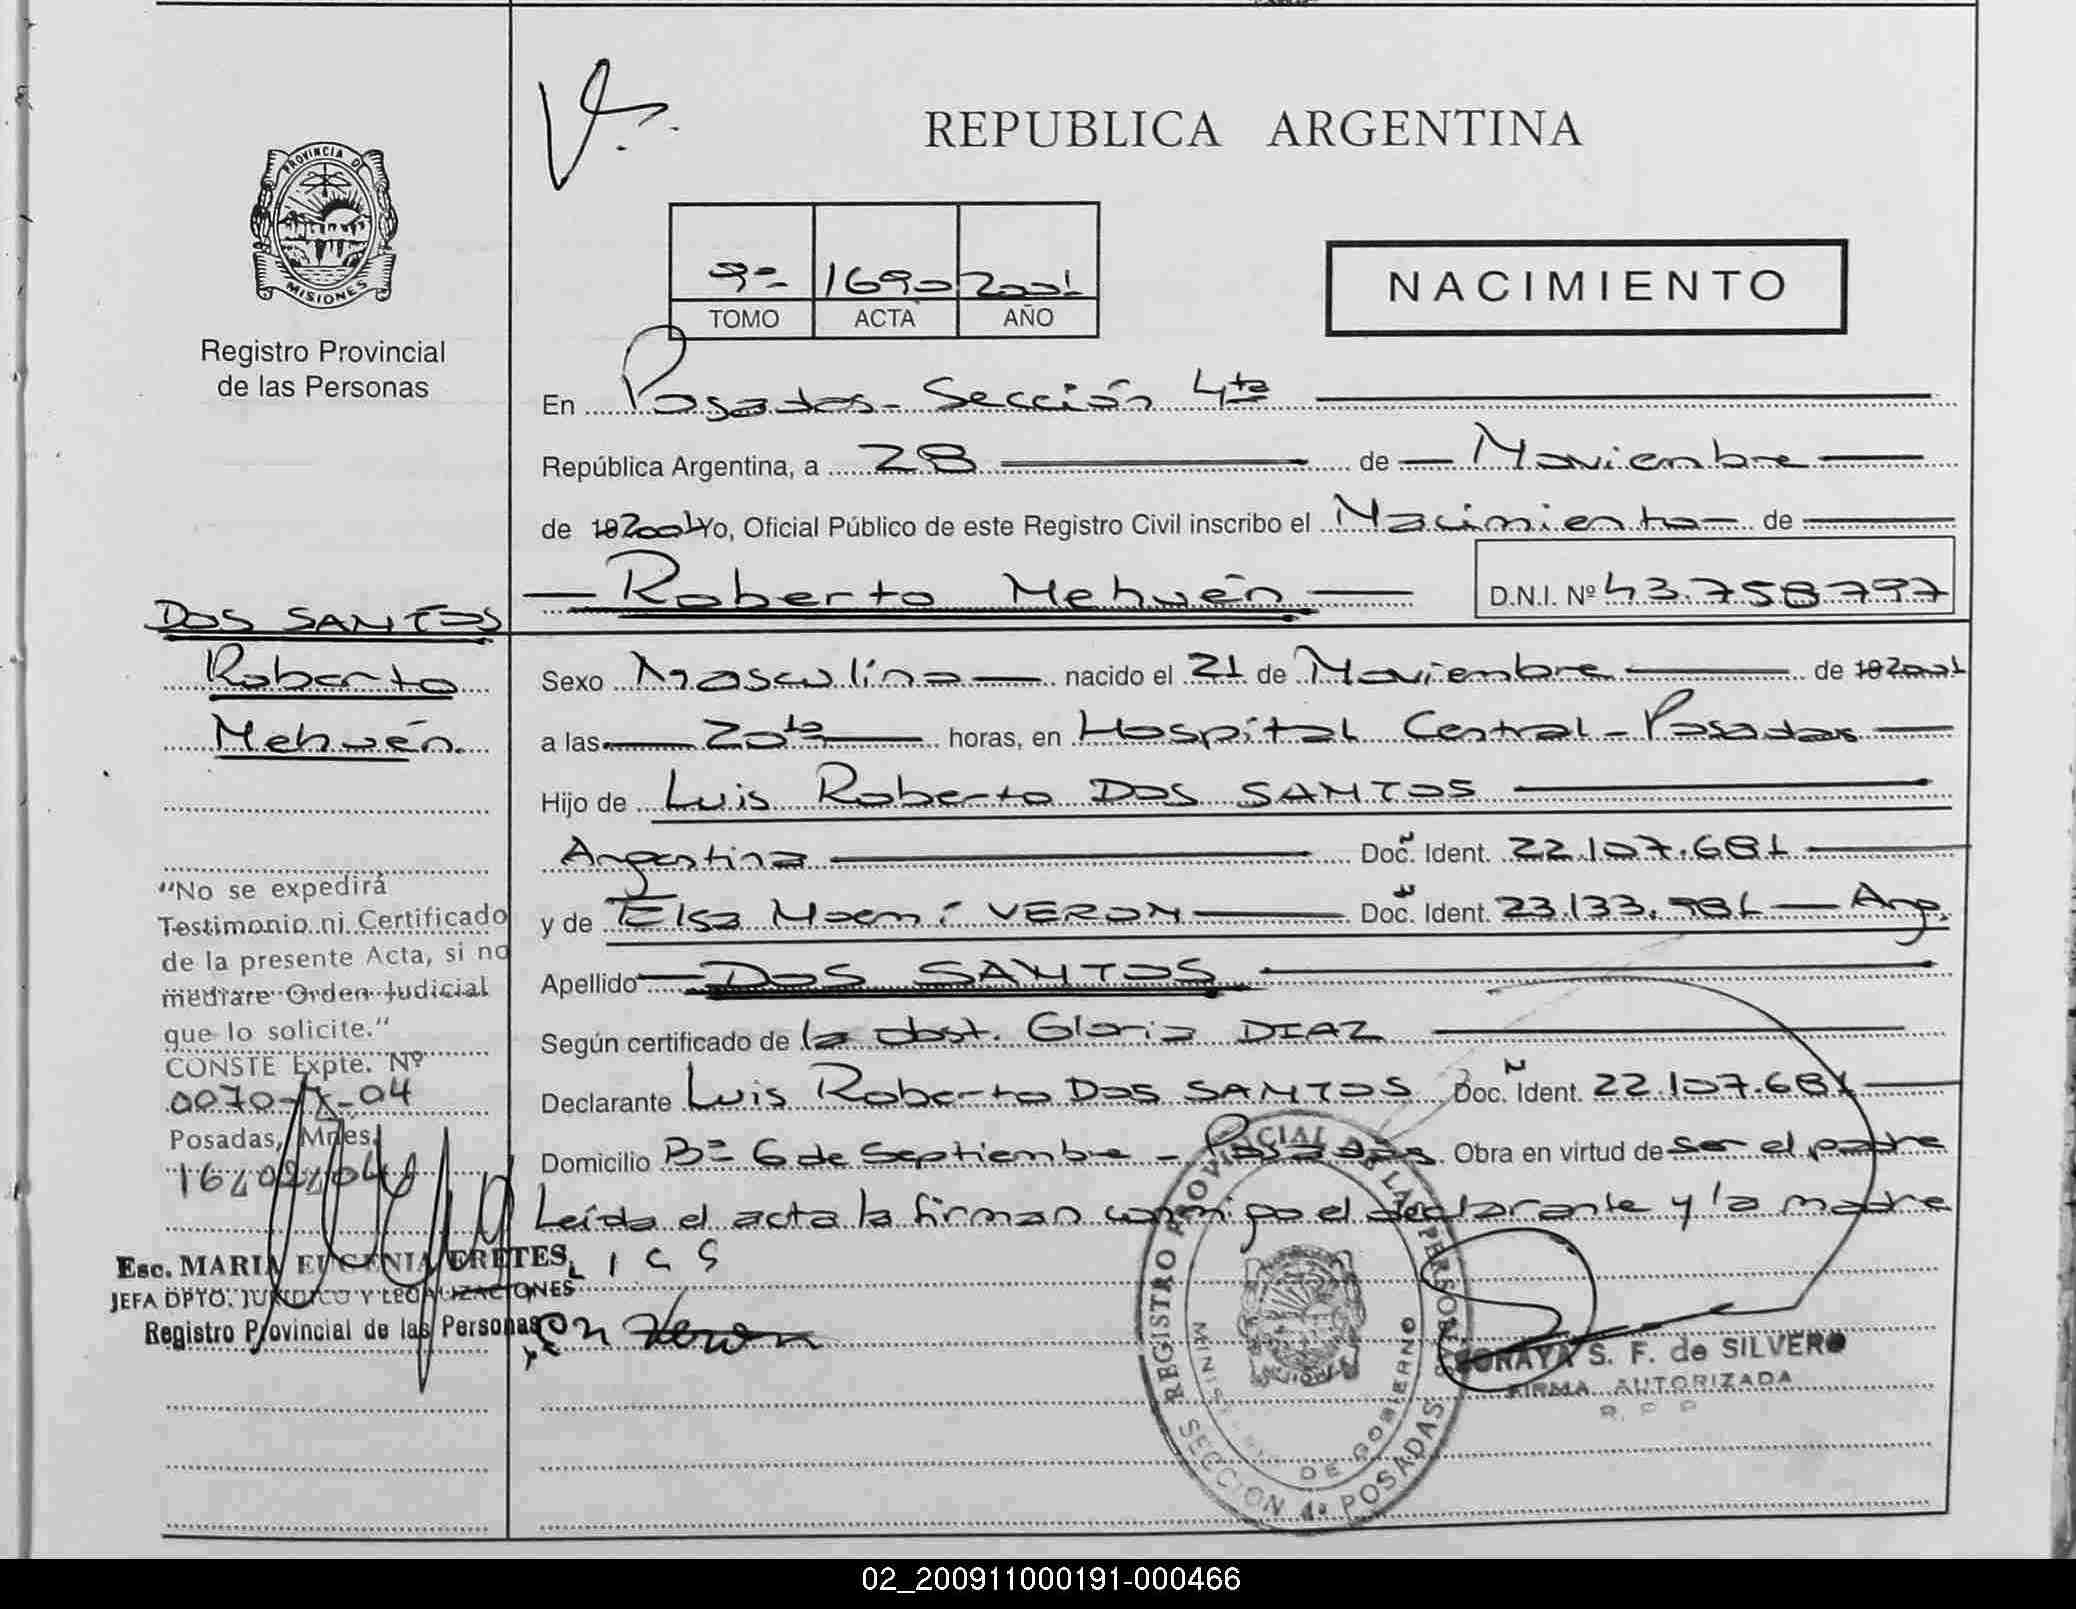 REPUBLICA ARGENTINA
PROVINCIA DE
MISIONES
Registro Provincial
de las Personas
9º 1690 2001
TOMO ACTA AÑO
NACIMIENTO
En Posadas - Sección 4ta
República Argentina, a 28 de Noviembre
de 19 2001 Yo, Oficial Público de este Registro Civil inscribo el Nacimiento de
Roberto Nehuén D.N.I. Nº 43.758797
DOS SANTOS
Roberto
Nehuén.
Sexo Masculino nacido el 21 de Noviembre de 19 2001
a las 20 horas, en Hospital Central - Posadas
Hijo de Luis Roberto DOS SANTOS
Argentina Doc. Ident. 22.107.681
y de Elsa Noemí VERON Doc. Ident. 23.133.981 Arg.
Apellido DOS SANTOS
Según certificado de la obst. Gloria DIAZ
Declarante Luis Roberto DOS SANTOS Doc. Ident. 22.107.681
Domicilio Bº 6 de Septiembre - Posadas. Obra en virtud de ser el padre
Leída el acta la firman conmigo el declarante y la madre
"No se expedirá
Testimonio ni Certificado
de la presente Acta, si no
mediare Orden Judicial
que lo solicite."
CONSTE Expte. Nº
0070-04
Posadas, Mnes.
16/02/04
Esc. MARIA EUGENIA
JEFA DPTO. JURIDICO Y LEGALIZACIONES
Registro Provincial de las Personas
Veron
REGISTRO PROVINCIAL DE LAS PERSONAS
MINISTERIO DE GOBIERNO
MISIONES
SECCION 4a POSADAS
SORAYA S. F. de SILVERO
FIRMA AUTORIZADA
R. P. P.
02_200911000191-000466